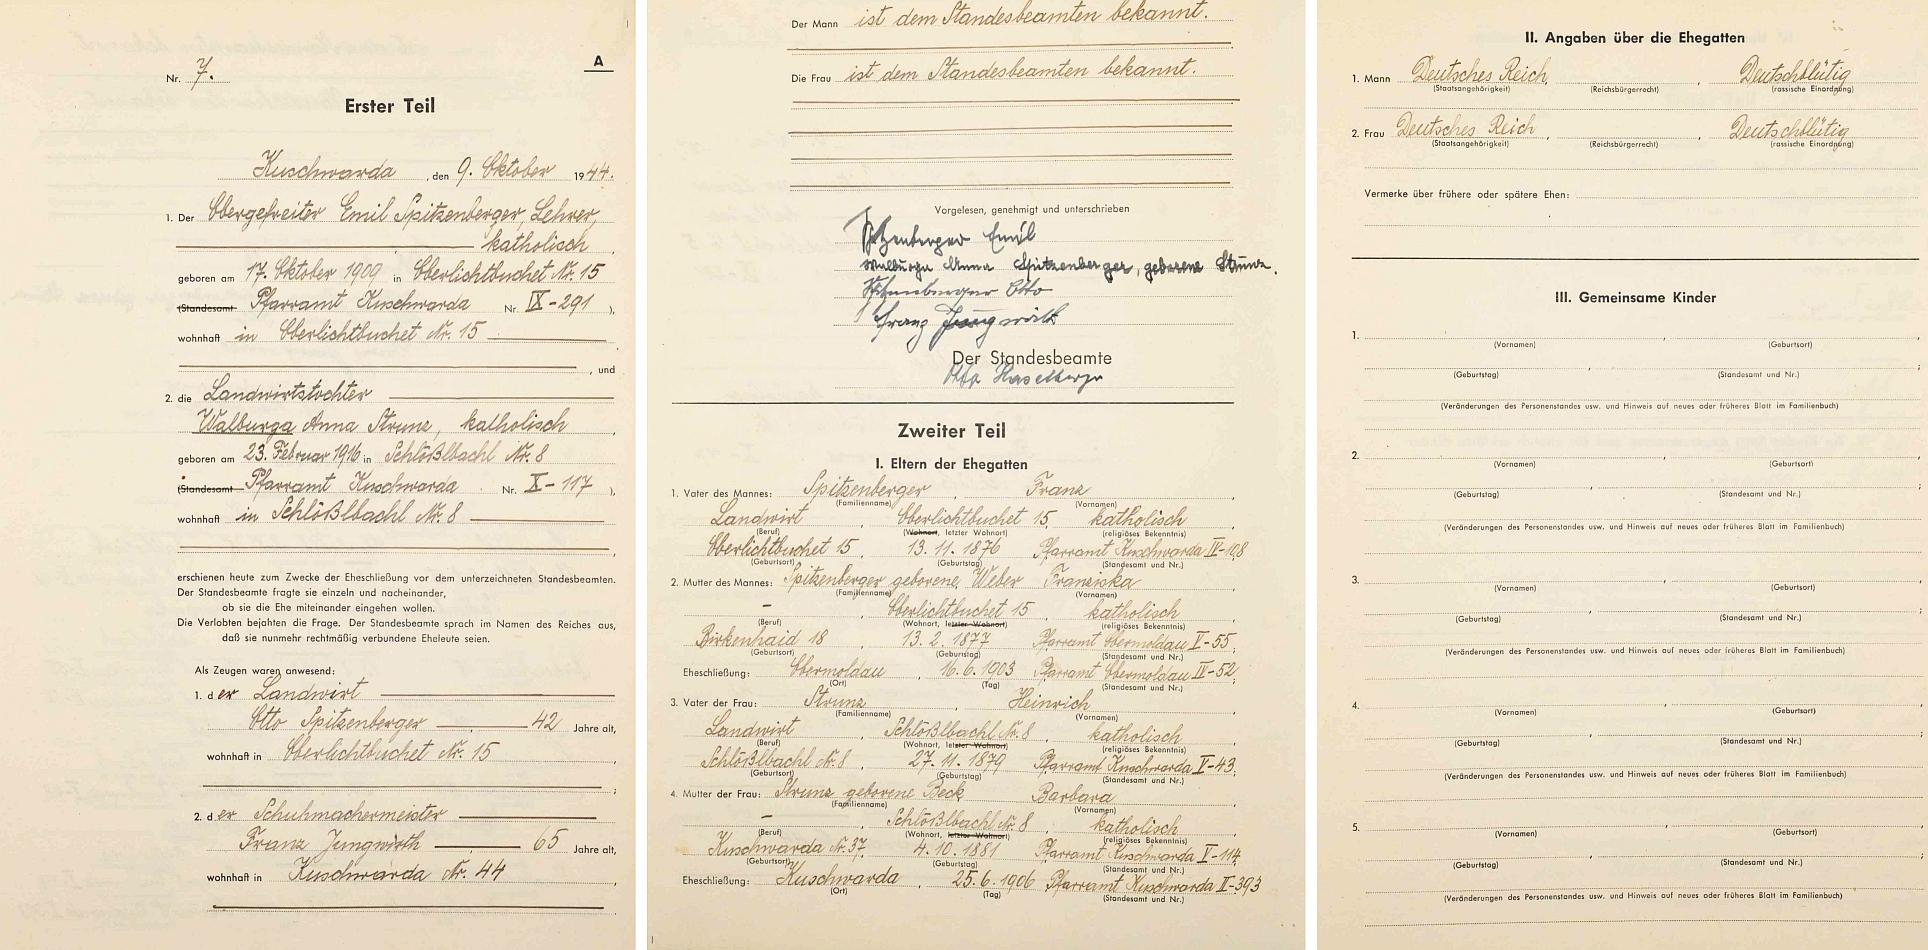 A
Nr. 7.
Erster Teil
Kuschwarda, den 9. Oktober 1944.
1. Der Obergefreiter Emil Spitzenberger, Lehrer,
katholisch
geboren am 17. Oktober 1909 in Oberlichtbuchet Nr. 15
(Standesamt Pfarramt Kuschwarda Nr. IX-291),
wohnhaft in Oberlichtbuchet Nr. 15
, und
2. die Landwirtstochter
Walburga Anna Strunz, katholisch,
geboren am 23. Februar 1916 in Schlößlbachl Nr. 8
(Standesamt Pfarramt Kuschwarda Nr. X-117),
wohnhaft in Schlößlbachl Nr. 8
,
erschienen heute zum Zwecke der Eheschließung vor dem unterzeichneten Standesbeamten.
Der Standesbeamte fragte sie einzeln und nacheinander,
ob sie die Ehe miteinander eingehen wollen.
Die Verlobten bejahten die Frage. Der Standesbeamte sprach im Namen des Reiches aus,
daß sie nunmehr rechtmäßig verbundene Eheleute seien.
Als Zeugen waren anwesend:
1. der Landwirt
Otto Spitzenberger 42 Jahre alt,
wohnhaft in Oberlichtbuchet Nr. 15
;
2. der Schuhmachermeister
Franz Jungwirth 65 Jahre alt,
wohnhaft in Kuschwarda Nr. 44,
Der Mann ist dem Standesbeamten bekannt.
Die Frau ist dem Standesbeamten bekannt.
Vorgelesen, genehmigt und unterschrieben
Spitzenberger Emil
Walburga Anna Spitzenberger, geborene Strunz.
Spitzenberger Otto
Franz Jungwirth
Der Standesbeamte
Otto Haselberger
Zweiter Teil
I. Eltern der Ehegatten
1. Vater des Mannes: Spitzenberger, Franz
(Familienname) (Vornamen)
Landwirt, Oberlichtbuchet 15, katholisch,
(Beruf) (Wohnort, letzter Wohnort) (religiöses Bekenntnis)
Oberlichtbuchet 15, 13. 11. 1876 Pfarramt Kuschwarda IV-108
(Geburtsort) (Geburtstag) (Standesamt und Nr.)
2. Mutter des Mannes: Spitzenberger geborene Weber Franziska
(Familienname) (Vornamen)
- Oberlichtbuchet 15, katholisch,
(Beruf) (Wohnort, letzter Wohnort) (religiöses Bekenntnis)
Birkenhaid 18 13. 2. 1877 Pfarramt Obermoldau V-55;
(Geburtsort) (Geburtstag) (Standesamt und Nr.)
Eheschließung: Obermoldau, 16. 6. 1903 Pfarramt Obermoldau IV-52;
(Ort) (Tag) (Standesamt und Nr.)
3. Vater der Frau: Strunz, Heinrich
(Familienname) (Vornamen)
Landwirt, Schlößlbachl Nr. 8, katholisch,
(Beruf) (Wohnort, letzter Wohnort) (religiöses Bekenntnis)
Schlößlbachl Nr. 8, 27. 11. 1879 Pfarramt Kuschwarda V-43;
(Geburtsort) (Geburtstag) (Standesamt und Nr.)
4. Mutter der Frau: Strunz geborene Beck Barbara,
(Familienname) (Vornamen)
- Schlößlbachl Nr. 8, katholisch,
(Beruf) (Wohnort, letzter Wohnort) (religiöses Bekenntnis)
Kuschwarda Nr. 37, 4. 10. 1881 Pfarramt Kuschwarda V-114
(Geburtsort) (Geburtstag) (Standesamt und Nr.)
Eheschließung: Kuschwarda, 25. 6. 1906 Pfarramt Kuschwarda II-393
(Ort) (Tag) (Standesamt und Nr.)
II. Angaben über die Ehegatten
1. Mann Deutsches Reich, , Deutschblütig
(Staatsangehörigkeit) (Reichsbürgerrecht) (rassische Einordnung)
2. Frau Deutsches Reich, , Deutschblütig
(Staatsangehörigkeit) (Reichsbürgerrecht) (rassische Einordnung)
Vermerke über frühere oder spätere Ehen:
III. Gemeinsame Kinder
1. , ,
(Vornamen) (Geburtsort)
, ;
(Geburtstag) (Standesamt und Nr.)
(Veränderungen des Personenstandes usw. und Hinweis auf neues oder früheres Blatt im Familienbuch)
2. , ,
(Vornamen) (Geburtsort)
, ;
(Geburtstag) (Standesamt und Nr.)
(Veränderungen des Personenstandes usw. und Hinweis auf neues oder früheres Blatt im Familienbuch)
3. , ,
(Vornamen) (Geburtsort)
, ;
(Geburtstag) (Standesamt und Nr.)
(Veränderungen des Personenstandes usw. und Hinweis auf neues oder früheres Blatt im Familienbuch)
4. , ,
(Vornamen) (Geburtsort)
, ;
(Geburtstag) (Standesamt und Nr.)
(Veränderungen des Personenstandes usw. und Hinweis auf neues oder früheres Blatt im Familienbuch)
5. , ,
(Vornamen) (Geburtsort)
, ;
(Geburtstag) (Standesamt und Nr.)
(Veränderungen des Personenstandes usw. und Hinweis auf neues oder früheres Blatt im Familienbuch)